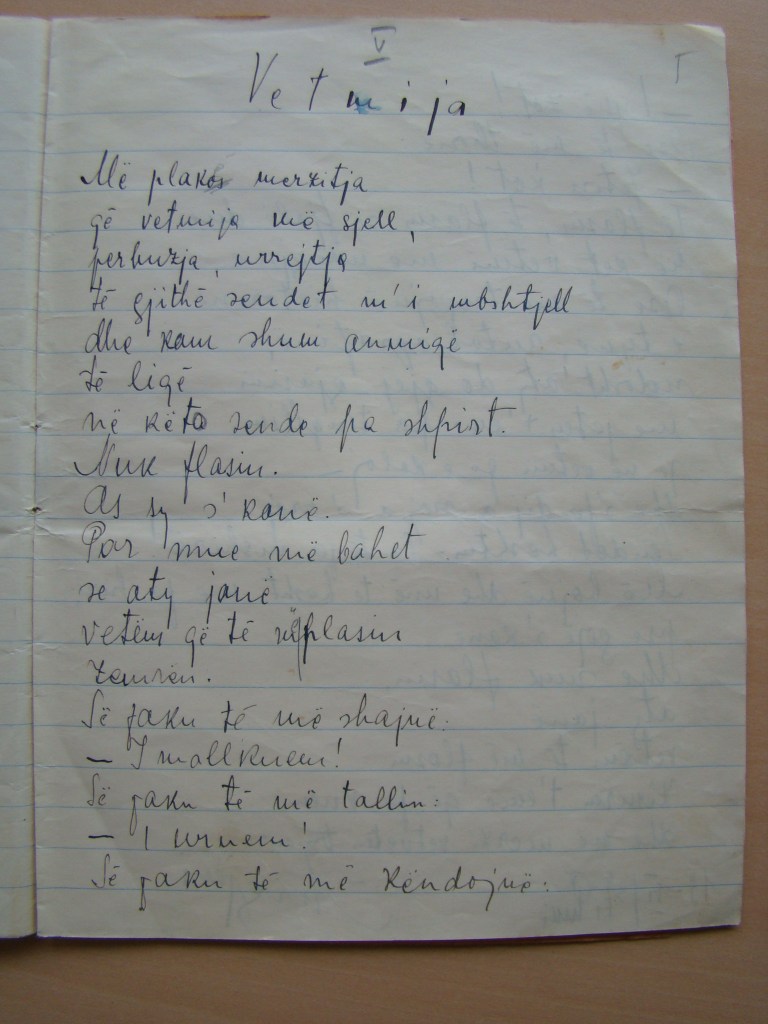 V
I
Vetmija
Më plakë merzitja
që vetmija më sjell,
perbuzja, urrejtja
të gjithë sendet m'i mbshtjell
dhe kam shum anmiqë
të liqë
në këto sende pa shpirt.
Nuk flasin.
As sy s'kanë.
Por mue më bahet
se aty janë
vetëm që të plasin
zemrën.
Së paku të më shajnë:
– I mallknem!
Së paku të më tallin:
– I urnem!
Së paku të më këndojnë: